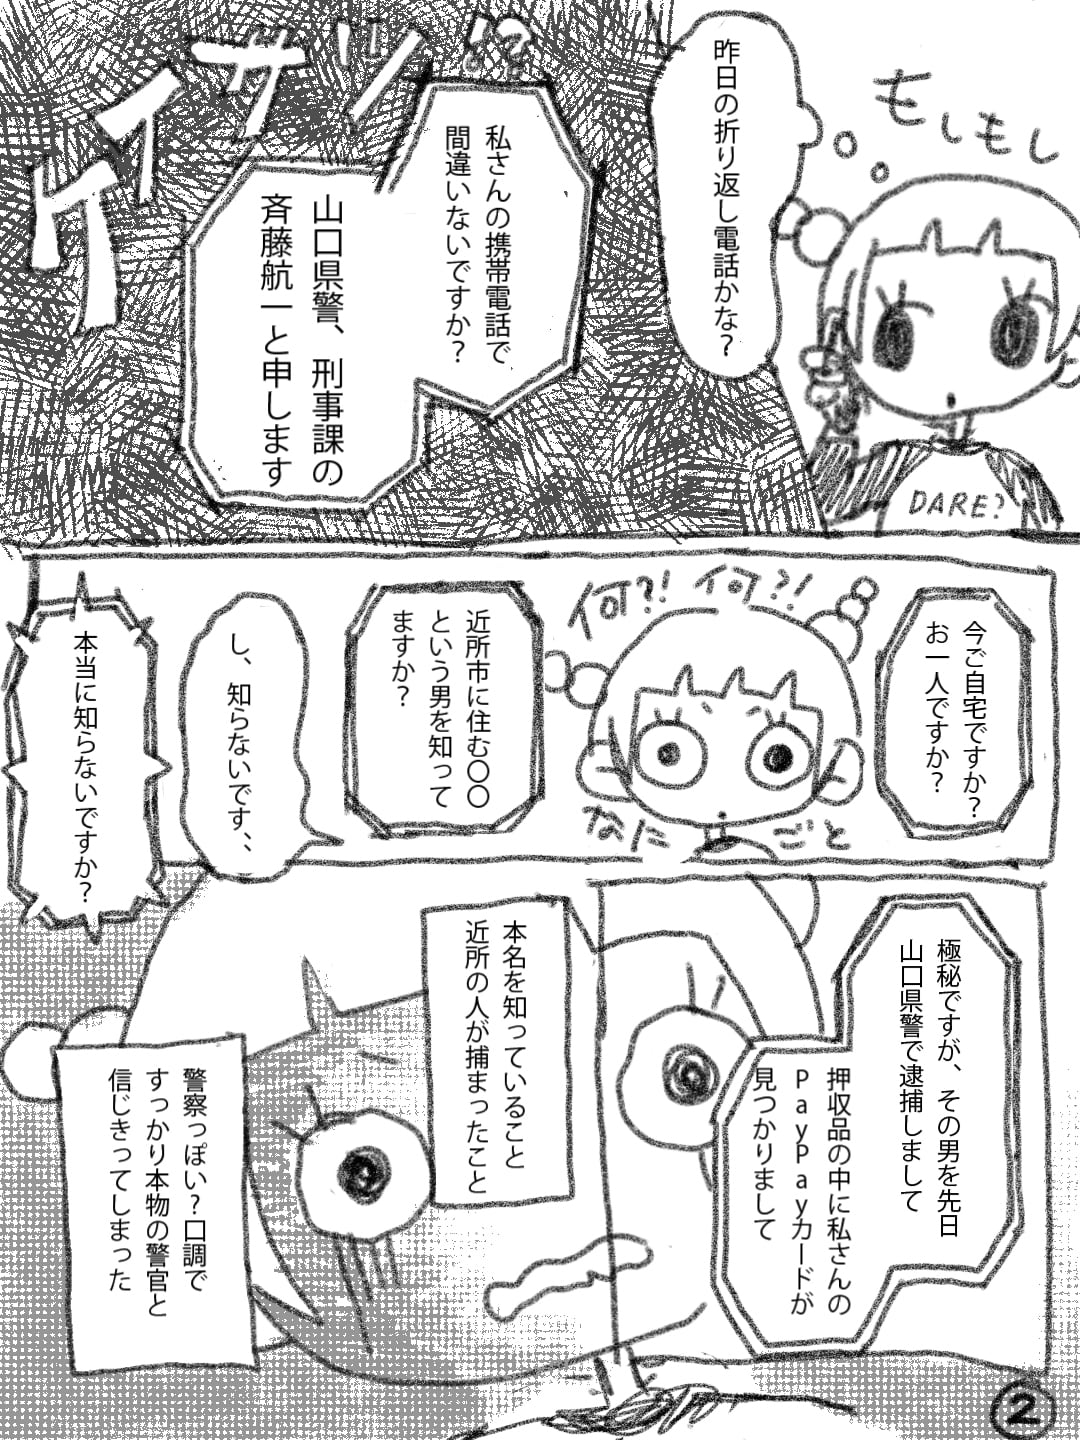 もしもし
昨日の折り返し電話かな?
DARE?
!?
私さんの携帯電話で
間違いないですか?
山口県警、刑事課の
斉藤航一と申します
ケイサツ
今ご自宅ですか?
お一人ですか?
何?!何?!
なにごと
近所市に住む〇〇
という男を知って
ますか?
し、知らないです、、
本当に知らないですか?
極秘ですが、その男を先日
山口県警で逮捕しまして
押収品の中に私さんの
PayPayカードが
見つかりまして
本名を知っていること
近所の人が捕まったこと
警察っぽい?口調で
すっかり本物の警官と
信じきってしまった
2